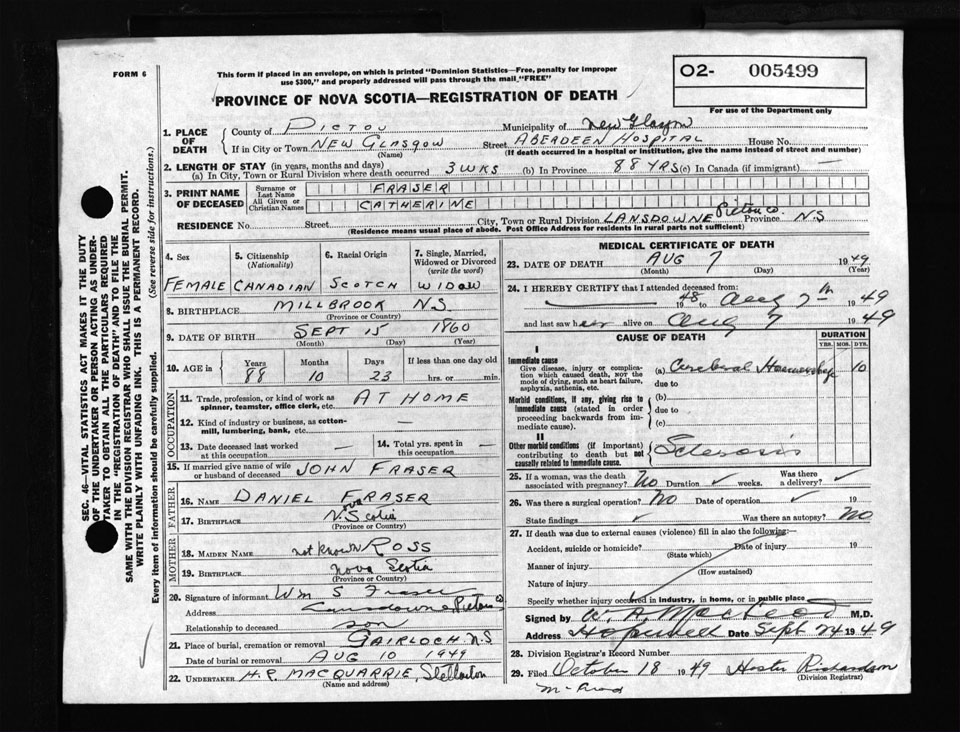 FORM 6
This form if placed in an envelope, on which is printed "Dominion Statistics—Free, penalty for improper
use $300," and properly addressed will pass through the mail, "FREE"
PROVINCE OF NOVA SCOTIA—REGISTRATION OF DEATH
O2- 005499
For use of the Department only
SEC. 46—VITAL STATISTICS ACT MAKES IT THE DUTY
OF THE UNDERTAKER OR PERSON ACTING AS UNDER-
TAKER TO OBTAIN ALL THE PARTICULARS REQUIRED
IN THE "REGISTRATION OF DEATH" AND TO FILE THE
SAME WITH THE DIVISION REGISTRAR WHO SHALL ISSUE THE BURIAL PERMIT.
WRITE PLAINLY WITH UNFADING INK. THIS IS A PERMANENT RECORD.
Every item of information should be carefully supplied. (See reverse side for instructions.)
1. PLACE OF DEATH
County of PICTOU Municipality of New Glasgow
If in City or Town NEW GLASGOW Street ABERDEEN HOSPITAL House No.
(Name) (If death occurred in a hospital or institution, give the name instead of street and number)
2. LENGTH OF STAY (in years, months and days)
(a) In City, Town or Rural Division where death occurred 3 WKS (b) In Province 88 YRS (c) In Canada (if immigrant) —
3. PRINT NAME OF DECEASED
Surname or Last Name FRASER
All Given or Christian Names CATHERINE
RESIDENCE No. Street City, Town or Rural Division LANSDOWNE Pictou Co. Province N.S
(Residence means usual place of abode. Post Office Address for residents in rural parts not sufficient)
4. Sex 5. Citizenship (Nationality) 6. Racial Origin 7. Single, Married, Widowed or Divorced (write the word)
FEMALE CANADIAN SCOTCH WIDOW
8. BIRTHPLACE MILLBROOK N.S
(Province or Country)
9. DATE OF BIRTH SEPT 15 1860
(Month) (Day) (Year)
10. AGE in Years Months Days If less than one day old
88 10 23 hrs. or min.
OCCUPATION
11. Trade, profession, or kind of work as spinner, teamster, office clerk, etc. AT HOME
12. Kind of industry or business, as cotton-mill, lumbering, bank, etc. —
13. Date deceased last worked at this occupation — 14. Total yrs. spent in this occupation —
15. If married give name of wife or husband of deceased JOHN FRASER
FATHER
16. NAME DANIEL FRASER
17. BIRTHPLACE N. Scotia
(Province or Country)
MOTHER
18. MAIDEN NAME not known ROSS
19. BIRTHPLACE Nova Scotia
(Province or Country)
20. Signature of informant Wm S Fraser
Address Lansdowne Pictou Co
Relationship to deceased son
21. Place of burial, cremation or removal GAIRLOCH N.S
Date of burial or removal AUG 10 1949
22. UNDERTAKER H.R. MACQUARRIE, Stellarton
(Name and address)
MEDICAL CERTIFICATE OF DEATH
23. DATE OF DEATH AUG 7 1949
(Month) (Day) (Year)
24. I HEREBY CERTIFY that I attended deceased from:
— 1948 to Aug 7th 1949
and last saw her alive on Aug 7 1949
CAUSE OF DEATH DURATION
YRS. MOS. DYS.
I
Immediate cause
Give disease, injury or complication which caused death, NOT the mode of dying, such as heart failure, asphyxia, asthenia, etc.
(a) Cerebral Haemorrhage 10
due to
Morbid conditions, if any, giving rise to immediate cause (stated in order proceeding backwards from immediate cause).
(b)
due to
(c)
II
Other morbid conditions (if important) contributing to death but not causally related to immediate cause. Sclerosis
25. If a woman, was the death associated with pregnancy? No Duration weeks. Was there a delivery?
26. Was there a surgical operation? No Date of operation 19
State findings Was there an autopsy? No
27. If death was due to external causes (violence) fill in also the following:—
Accident, suicide or homicide? Date of injury 19
(State which)
Manner of injury
(How sustained)
Nature of injury
Specify whether injury occurred in industry, in home, or in public place
Signed by M.D.
Address Hopewell Date Sept 24 1949
28. Division Registrar's Record Number
29. Filed October 18 1949 Hoster Richardson
(Division Registrar)